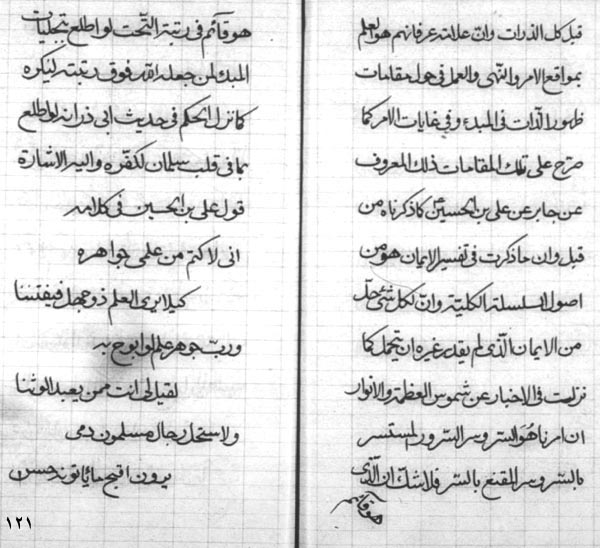 قبل كل الذرات وان علامة عرفانهم هو العلم
بمواقع الامر والنهى والعمل فى حول مقامات
ظهور الذات فى المبدء وفى غايات الامر كما
صرح على تلك المقامات ذلك المعروف
عن جابر عن على بن الحسين ص كما ذكرناه من
قبل وان ما ذكرت فى تفسير الايمان هو من
اصول السلسلة الكلية وان لكل شئ حق
من الايمان الذى لم يقدر غيره ان يتحمل كما
نزلت فى الاخبار عن شموس العظمة والانوار
ان امرنا هو السر وسر السر وسر المستسر
بالسر وسر المقنع بالسر فلا شك ان الذى
هو قائم
هو قائم فى رتبة التحت لو اطلع بتجليات
المبدء لمن جعله الله فوق رتبته ليكفره
كما نزل الحكم فى حديث ابى ذر انه لو اطلع
بما فى قلب سلمان لكفره واليه الاشارة
قول على بن الحسين فى كلامه
انى لاكتم من علمى جواهره
كيلا يرى العلم ذو جهل فيفتننا
ورب جوهر علم لو ابوح به
لقيل لى انت ممن يعبد الوثنا
ولاستحل رجال مسلمون دمى
يرون اقبح ما ياتونه حسن
١٢١